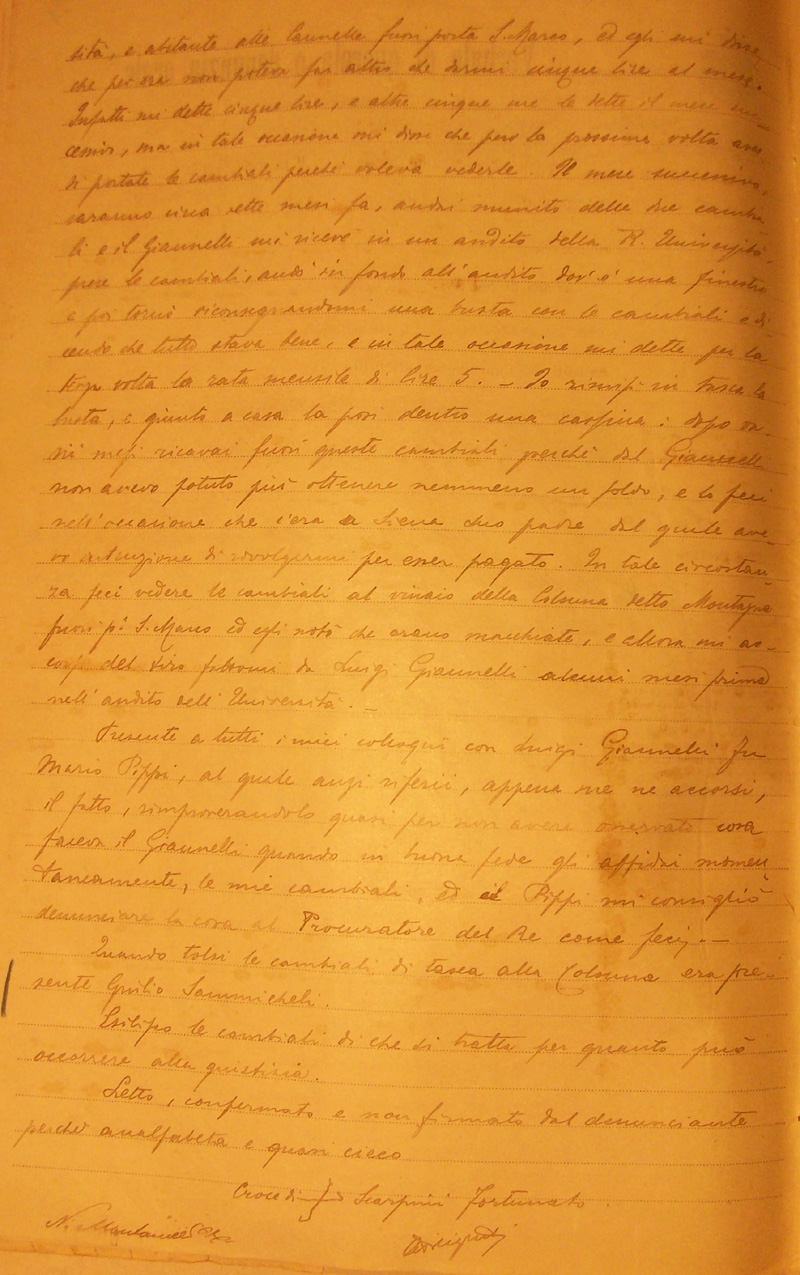 sità, e abitante alle fuori porta S. Marco, ed egli mi disse
che per ora non poteva far altro che darmi cinque lire al mese.
Infatti mi dette cinque lire, e altre cinque me le dette il mese suc-
cessivo, ma in tale occasione mi disse che però la prossima volta aves-
si portate le cambiali perché voleva vederle. Il mese successivo,
saranno circa sette mesi fa, andai munito delle due cambia-
li e il Giannelli mi riceve in un andito della R. Università,
prese le cambiali, andò in fondo all'andito dov'è una finestra
e poi tornò riconsegnandomi una busta con le cambiali e di-
cendo che tutto stava bene, e in tale occasione mi dette per la
terza volta la rata mensile di lire 5. - Io rimisi in tasca la
busta, e giunto a casa la posi dentro una cassina: dopo va-
rii mesi ricavai fuori queste cambiali perchè dal Giannelli
non avevo potuto più ottenere nemmeno un soldo, e lo feci
nell'occasione che c'era a Siena suo padre dal quale ave-
vo intenzione di rivolgermi per esser pagato. In tale circostan-
za feci vedere le cambiali al vinaio della Colonna detto Montagna
fuori p.a S. Marco ed egli notò che erano macchiate, e allora mi ac-
corsi del tiro fattomi da Luigi Giannelli alcuni mesi prima
nell'andito dell'Università. -
Presente a tutti i miei colloqui con Luigi Giannelli fu
Mario Pippi, al quale anzi riferii, appena me ne accorsi,
il fatto, rimproverandolo quasi per non avere osservato cosa
faceva il Giannelli quando in buona fede gli affidai momen-
taneamente, le mie cambiali, ed il Pippi mi consigliò
denunciare la cosa al Procuratore del Re come feci. -
Quando tolsi le cambiali di tasca alla Colonna era pre-
sente Giulio Sammicheli.
Esibisco le cambiali di che si tratta per quanto può
occorrere alla giustizia.
Letto, confermato e non firmato dal denunciante
perchè analfabeta e quasi cieco
Croce di Scarpini Fortunato.